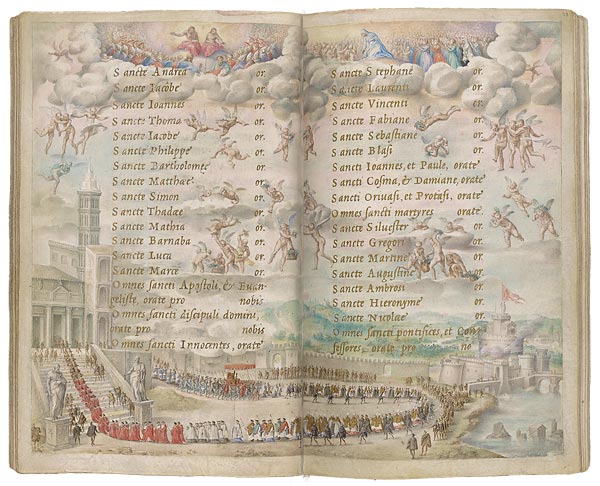 Sancte Andrea or.
Sancte Iacobe or.
Sancte Ioannes or.
Sancte Thoma or.
Sancte Iacobe or.
Sancte Philippe or.
Sancte Bartholomee or.
Sancte Matthae or.
Sancte Simon or.
Sancte Thadae or.
Sancte Mathia or.
Sancte Barnaba or.
Sancte Luca or.
Sancte Marce or.
Omnes sancti Apostoli, & Euan-
gelistę, orate pro nobis.
Omnes sancti discipuli domini,
orate pro nobis
Omnes sancti Innocentes, orate
Sancte Stephane or.
Sancte Laurenti or.
Sancte Vincenti or.
Sancte Fabiane or.
Sancte Sebastiane or.
Sancte Blasi or.
Sancti Ioannes, et Paule, orate
Sancti Cosma, & Damiane, orate
Sancti Geruasi, et Protasi, orate
Omnes sancti martyres orate.
Sancte Siluester or.
Sancte Gregori or.
Sancte Martine or.
Sancte Augustine or.
Sancte Ambrosi or.
Sancte Hieronyme or.
Sancte Nicolae or.
Omnes sancti pontifices, et Con-
fessores, orate pro no